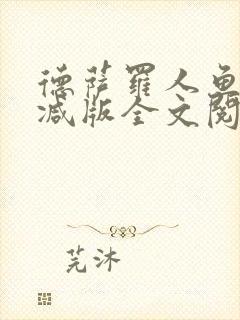 德萨罗人鱼
减版全文阅
芫沐